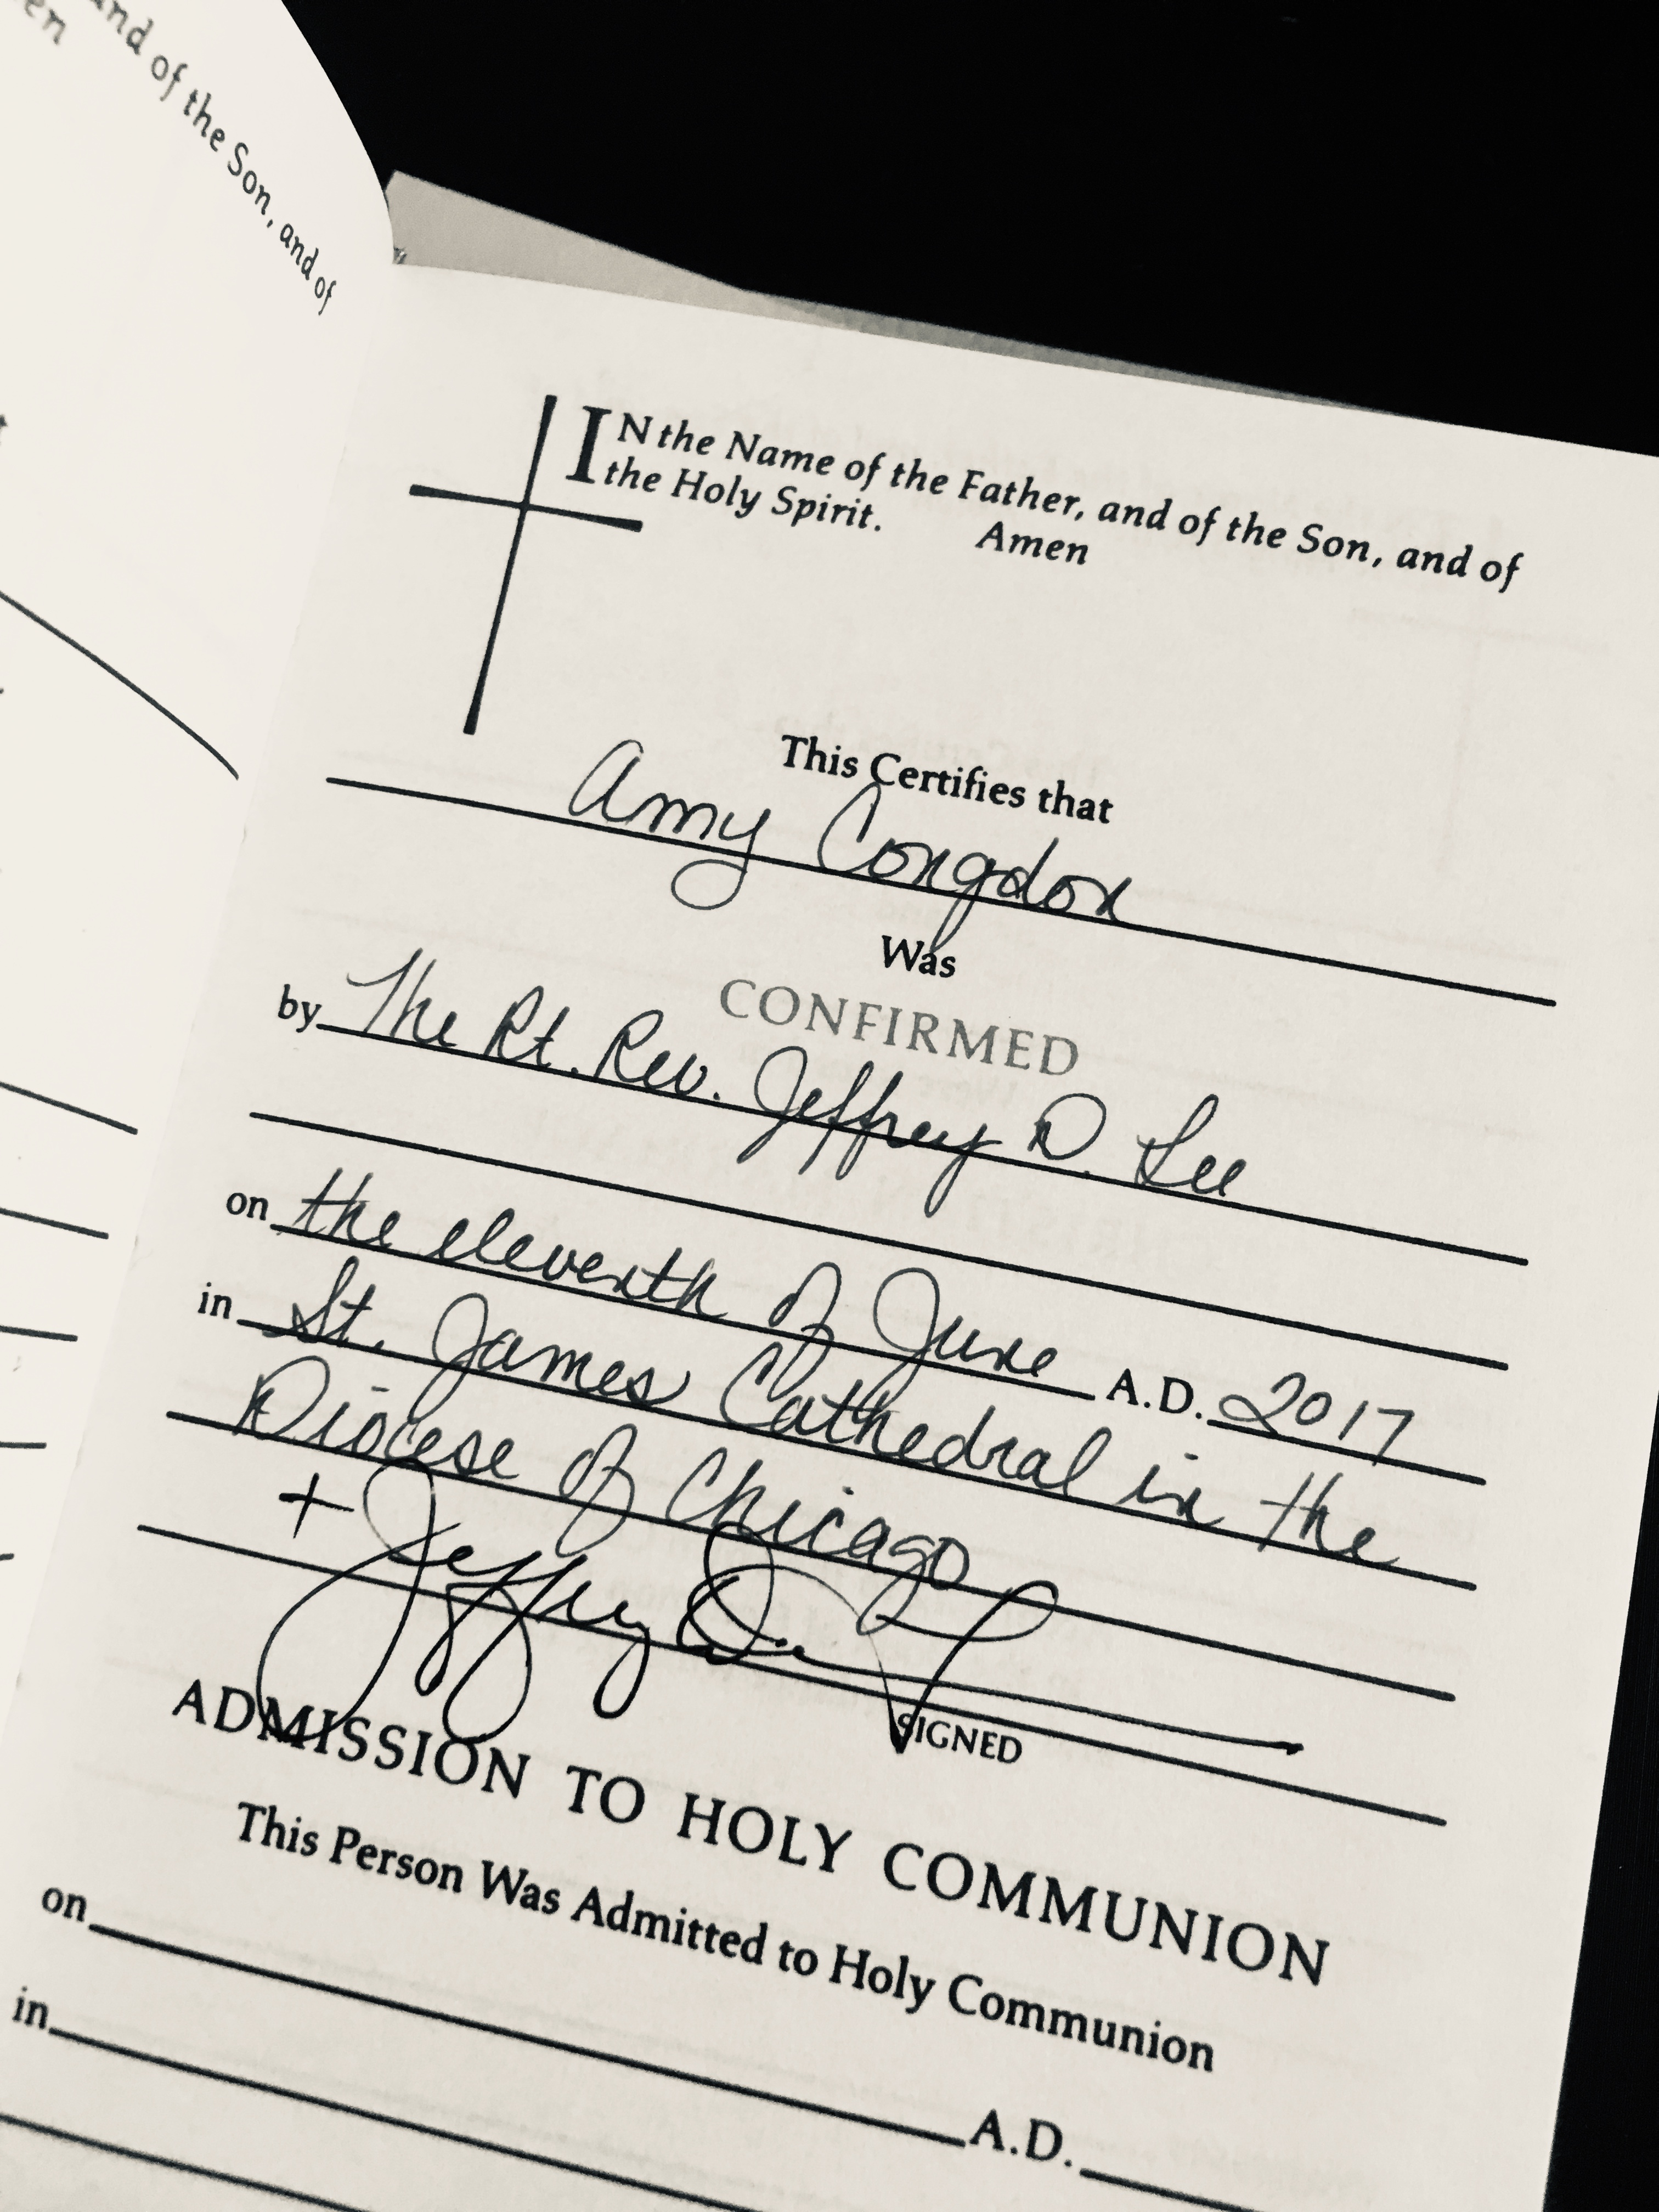 en
and of the Son, and of
IN the Name of the Father, and of the Son, and of
the Holy Spirit. Amen
This Certifies that
Amy Congdon
Was
CONFIRMED
by The Rt. Rev. Jeffrey D. Lee
on the eleventh of June A.D. 2017
in St. James Cathedral in the
Diocese of Chicago
+Jeffrey D. Lee
SIGNED
ADMISSION TO HOLY COMMUNION
This Person Was Admitted to Holy Communion
on A.D.
in